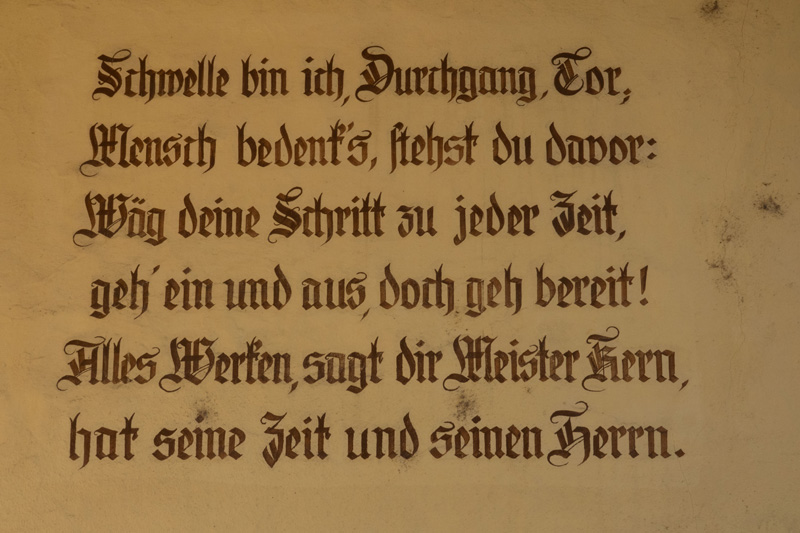 Schwelle bin ich, Durchgang, Tor,
Mensch bedenk's, stehst du davor:
Wäg deine Schritt zu jeder Zeit,
geh' ein und aus, doch geh bereit!
Alles Werken, sagt dir Meister Kern,
hat seine Zeit und seinen Herrn.